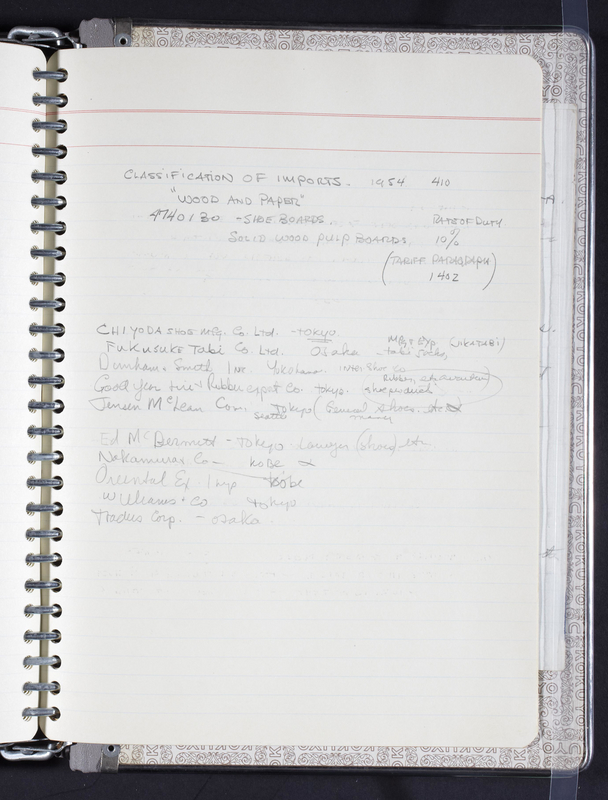 CLASSIFICATION OF IMPORTS. 1954 410
"WOOD AND PAPER"
4740130 - SIDE BOARDS. RATE OF DUTY
SOLID WOOD PULP BOARDS. 10%
(TARIFF PARAGRAPH
1402)
CHIYODA SHOE MFG. Co. Ltd. - TOKYO.
FUKUSUKE Tabi Co. Ltd. Osaka - tabi socks, MFG & EXP. (JIKATABI)
Dunham & Smith INC. Yokohama. INTER. Shoe Co
Good Year tire & Rubber export Co. Tokyo. shoe product. Rubber,
Jensen McLean Com. Tokyo (General shoes. etc
Seattle
Ed McDermott - Tokyo Lawyer (shoes) etc.
Nakamura & Co - KOBE
Oriental Ex. Imp Kobe
Williams & Co Tokyo
Traders Corp. - osaka.